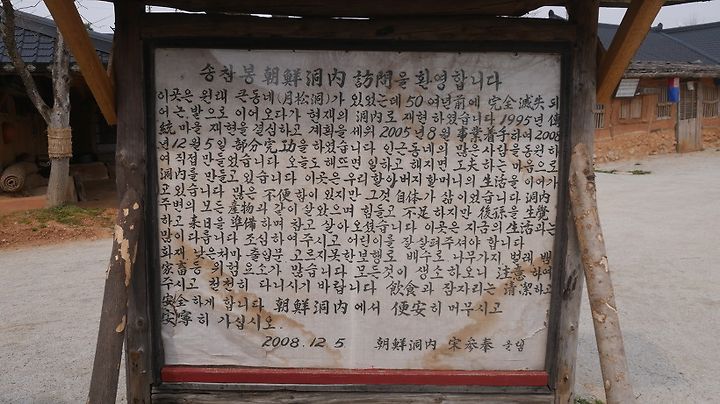 송참봉 朝鮮洞內 訪問을 환영합니다
이곳은 원래 큰동네(月松洞)가 있었는데 50여년前에 完全 滅失되
어 는 밭으로 이어오다가 현재의 洞內로 재현하였습니다 1995년 傳
統마을 재현을 결심하고 계획을 세워 2005년8월 事業着手하여 2008
년12월5일 部分完功을 하였습니다 인근동네의 많은사람을 동원하
여 직접 만들었습니다 오늘도 해뜨면 일하고 해지면 工夫하는 마음으로
洞內를 만들고 있습니다 이곳은 우리할아버지할머니의 生活을 이어가
고 있습니다 많은 不便함이 있지만 그것 自体가 삶이었습니다 洞內
주변의 모든 產物과 같이 살았으며 힘들고 不足하지만 後孫을 生覺
하고 來日을 準備하며 참고 살아오셨습니다 이곳은 지금의 生活과는
많이 다릅니다 조심하여주시고 어린이를 잘 살펴주셔야 합니다
화재 낮은처마 출입문 고르지못한보행로 배수로 나무가지 벌레 뱀
家畜등 위험요소가 많습니다 모든것이 생소하오니 注意하여
주시고 천천히 다니시기 바랍니다 飮食과 잠자리는 淸潔하고
安全하게 합니다 朝鮮洞內에서 便安히 머무시고
安寧히 가십시오.
2008.12.5 朝鮮洞內 宋參奉 올림